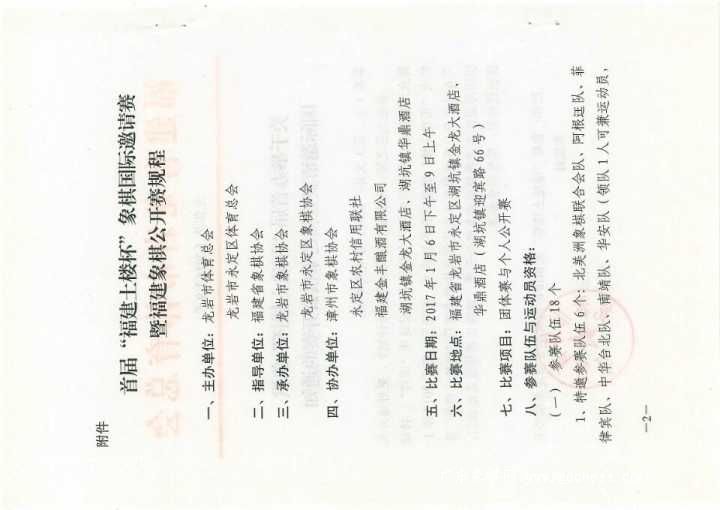 附件
首届“福建土楼杯”象棋国际邀请赛
暨福建象棋公开赛规程
一、主办单位：龙岩市体育总会
龙岩市永定区体育总会
二、指导单位：福建省象棋协会
三、承办单位：龙岩市象棋协会
龙岩市永定区象棋协会
四、协办单位：漳州市象棋协会
永定区农村信用联社
福建金丰酿酒有限公司
湖坑镇金龙大酒店、湖坑镇华鼎酒店
五、比赛日期：2017年1月6日下午至9日上午
六、比赛地点：福建省龙岩市永定区湖坑镇金龙大酒店、
华鼎酒店（湖坑镇迎宾路66号）
七、比赛项目：团体赛与个人公开赛
八、参赛队伍与运动员资格：
（一）参赛队伍18个
1、特邀参赛队伍6个：北美洲象棋联合会队、阿根廷队、菲
律宾队、中华台北队、南靖队、华安队（领队1人可兼运动员，
—2—